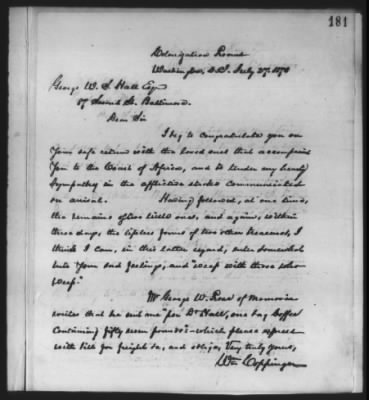 181
Colonization Rooms
Washington, D.C. July 27, 1878
George W. S. Hall Esq
Second St. Baltimore.
Dear Sir
I beg to congratulate you on
Your safe return with the loved ones that accompanied
You to the Coast of Africa, and to tender my hearty
Sympathy in the affliction communicated
on arrival. Having followed, at one time,
the remains of two little ones, and again, within
three days, the lifeless forms of two other treasures, I
think I can, in this latter regard, enter somewhat
into Your sad feelings, and "weep with those who
weep."
Mr George W. Ross of Monrovia
writes that he sent me "per Dr Hall, one bag Coffee
Containing fifty seven pounds"—which please express
with bill for freight &c, and oblige, Very truly yours,
Wm Coppinger